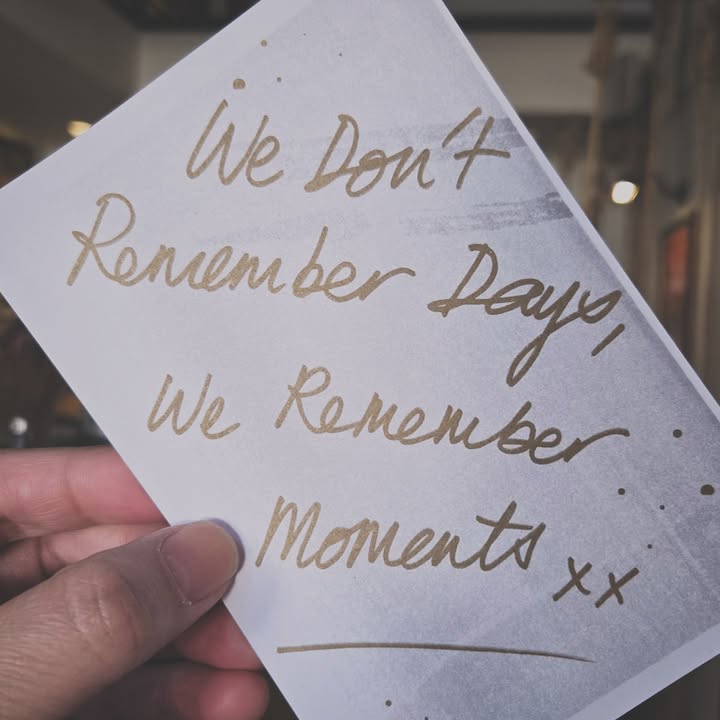 We Don't
Remember Days,
We Remember
Moments xx